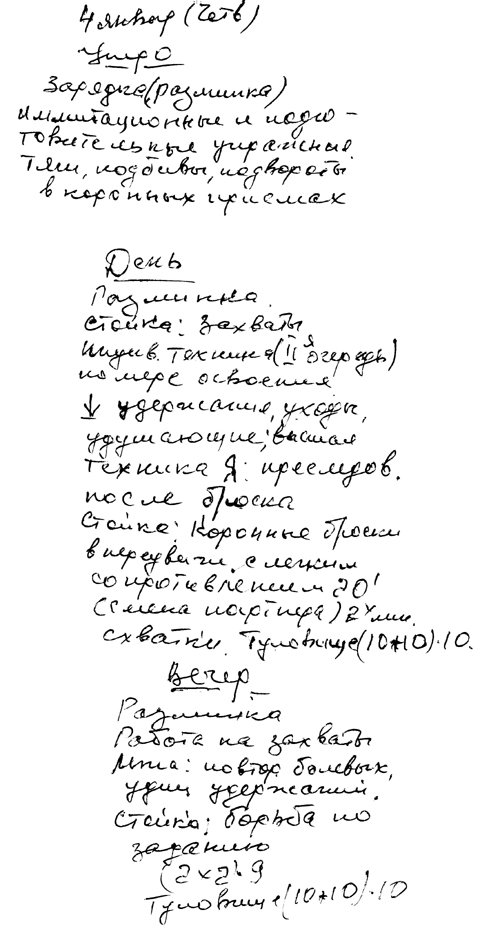 4 январ (Четв)
Утро
Зарядка (разминка)
Иммитационные и подго-
товительные упражнения.
Тяги, подбивы, подвороты
в коронных приемах
День
Разминка.
Стойка: захваты
Индив. техника (II я очередь)
по мере освоения
↓ удержания, уходы,
удушающие; высшая
техника Я: преследов.
после броска
Стойка: Коронные броски
в передвиж. с легким
сопротивлением 20'
(Смена партнера) 2х мин.
схватки. Туловище (10+10)·10.
Вечер
Разминка
Работа на захваты
повтор болевых,
удуш удержаний.
Стойка: борьба по
заданию
(2x2)·9
Туловище (10+10)·10